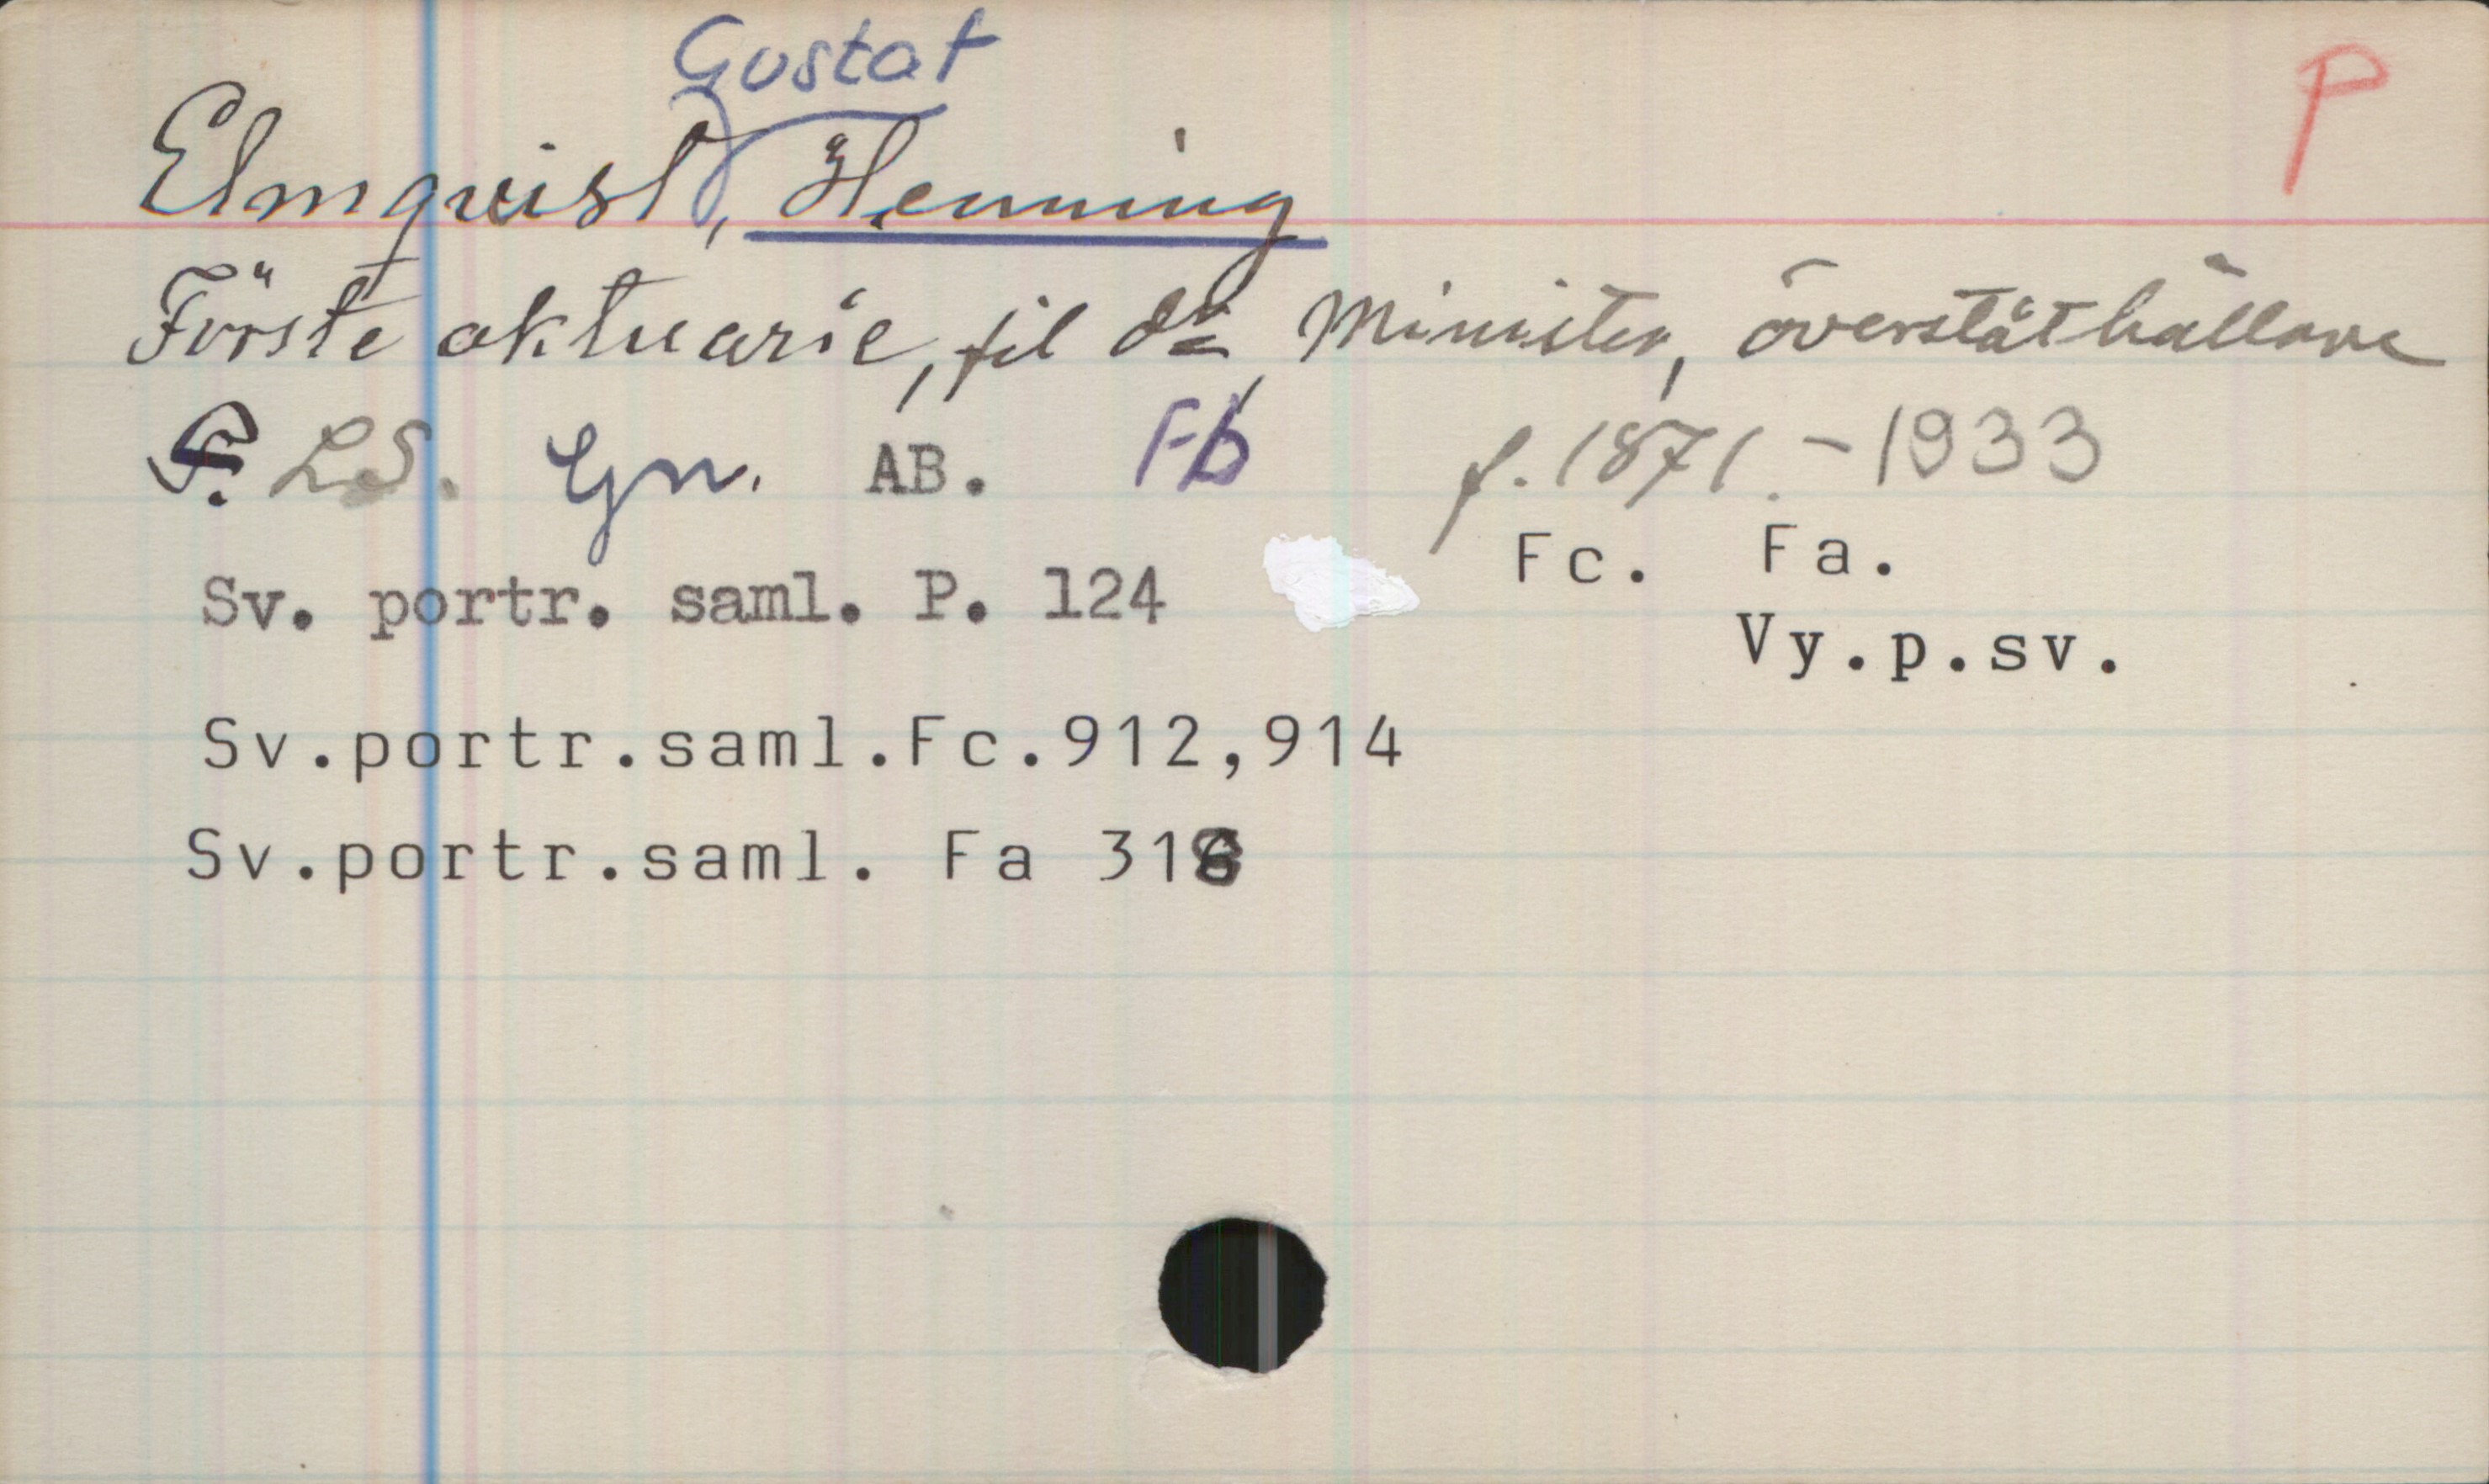 Gustaf
P
Elmqvist, Henning
Förste aktuarie, fil dr Minister, överståthållare
S. LS. Gn. AB. Fb f. 1871. - 1933
Fc. Fa.
Sv. portr. saml. P. 124
Vy.p.sv.
Sv.portr.saml.Fc.912,914
Sv.portr.saml. Fa